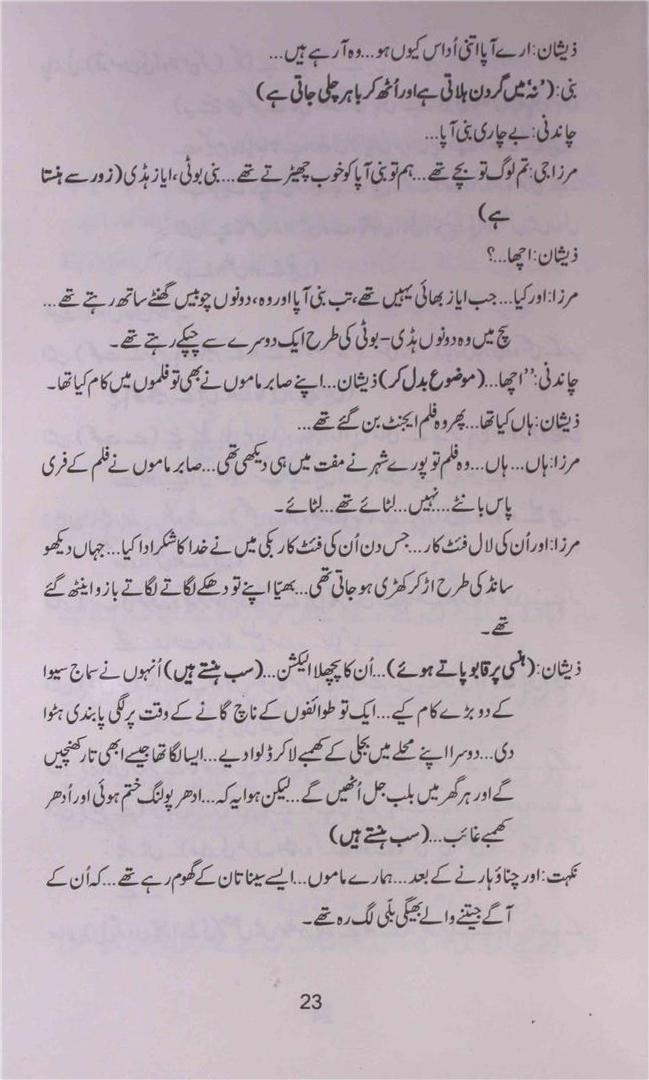 ذیشان: ارے آپا اتنی اُداس کیوں ہو... وہ آ رہے ہیں...
بنی: (’نہ‘ میں گردن ہلاتی ہے اور اُٹھ کر باہر چلی جاتی ہے)
چاندنی: بے چاری بنی آپا...
مرزا جی: تم لوگ تو بچے تھے... ہم تو بنی آپا کو خوب چھیڑتے تھے... بنی بوٹی، ایاز ہڈی (زور سے ہنستا
ہے)
ذیشان: اچھا...؟
مرزا: اور کیا... جب ایاز بھائی یہیں تھے، تب بنی آپا اور وہ، دونوں چوبیس گھنٹے ساتھ رہتے تھے...
سچ میں وہ دونوں ہڈی-بوٹی کی طرح ایک دوسرے سے چپکے رہتے تھے۔
چاندنی: ’’اچھا... (موضوع بدل کر) ذیشان... اپنے صابر ماموں نے بھی تو فلموں میں کام کیا تھا۔
ذیشان: ہاں کیا تھا... پھر وہ فلم ایجنٹ بن گئے تھے...
مرزا: ہاں... ہاں... وہ فلم تو پورے شہر نے مفت میں ہی دیکھی تھی... صابر ماموں نے فلم کے فری
پاس بانٹے... نہیں... لٹائے تھے... لٹائے۔
مرزا: اور اُن کی لال فئٹ کار... جس دن اُن کی فئٹ کار بکی میں نے خدا کا شکر ادا کیا... جہاں دیکھو
سانڈ کی طرح اڑ کر کھڑی ہو جاتی تھی... بھیّا اپنے تو دھکے لگاتے لگاتے بازو اینٹھ گئے
تھے۔
ذیشان: (ہنسی پر قابو پاتے ہوئے)... اُن کا پچھلا الیکشن... (سب ہنستے ہیں) اُنہوں نے سماج سیوا
کے دو بڑے کام کیے... ایک تو طوائفوں کے ناچ گانے کے وقت پر لگی پابندی ہٹوا
دی... دوسرا اپنے محلے میں بجلی کے کھمبے لا کر ڈلوا دیے... ایسا لگا تھا جیسے ابھی تار کھنچیں
گے اور ہر گھر میں بلب جل اُٹھیں گے... لیکن ہوا یہ کہ... ادھر پولنگ ختم ہوئی اور اُدھر
کھمبے غائب... (سب ہنستے ہیں)
نکہت: اور چناؤ ہارنے کے بعد... ہمارے ماموں... ایسے سینا تان کے گھوم رہے تھے... کہ اُن کے
آگے جیتنے والے بھیگی بلّی لگ رہ تھے۔
23